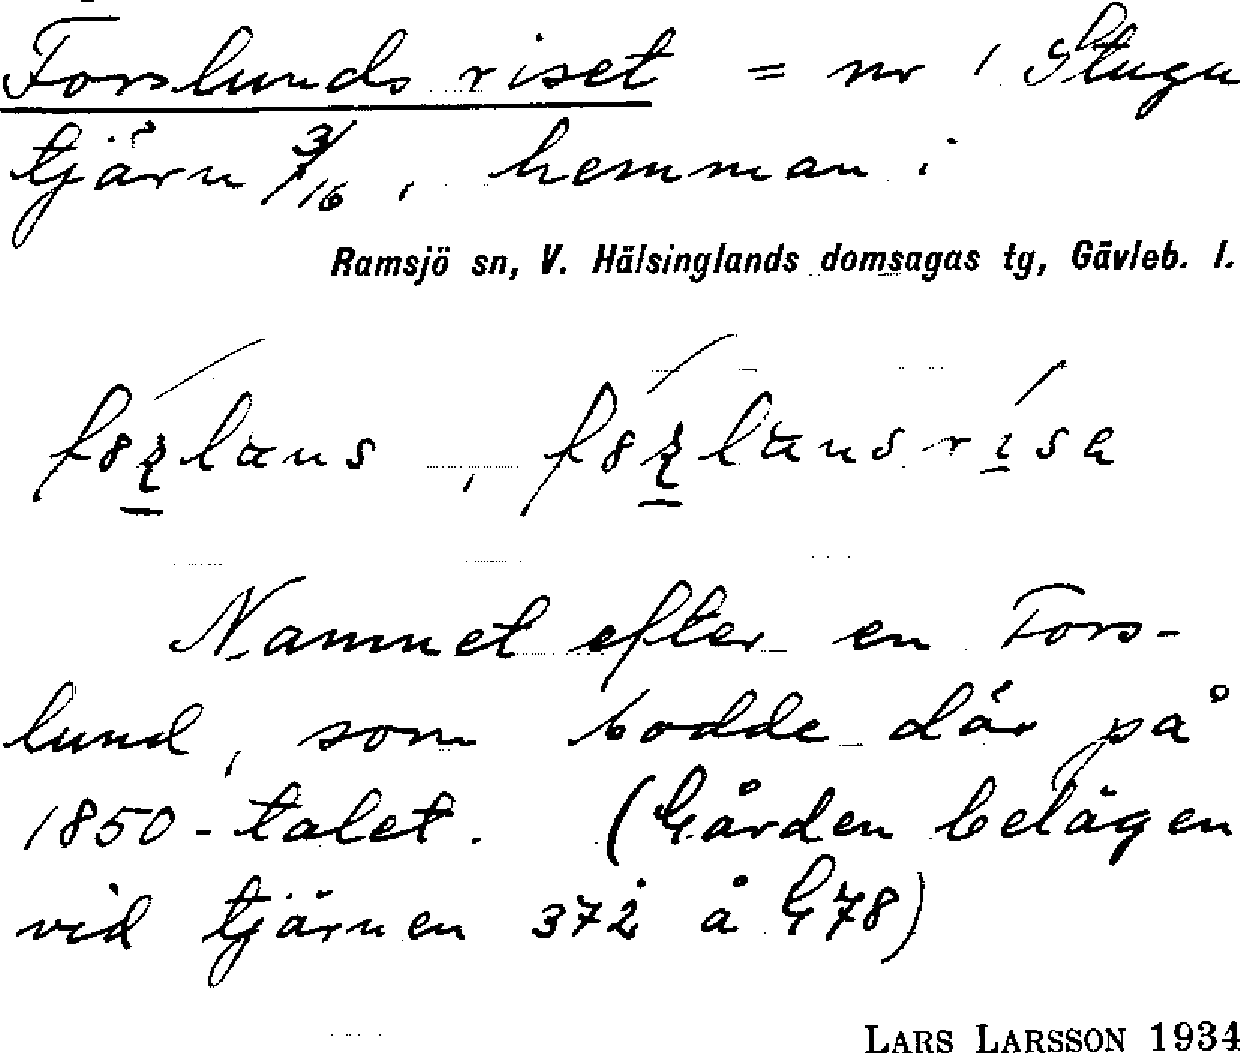 Forslunds riset = nr 1 Stugu
tjärn 3/16, hemman i
Ramsjö sn, V. Hälsinglands domsagas tg, Gävleb. l.
Namnet efter en Fors-
lund, som bodde där på
1850-talet. (Gården belägen
vid tjärnen 372 å G78)
LARS LARSSON 1934